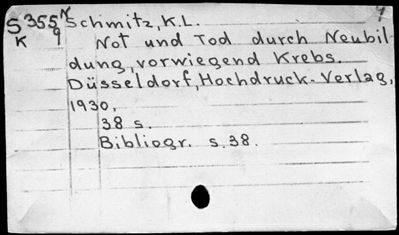 S 355 N Schmitz, K.L. 7
K 9 Not und Tod durch Neubil-
dung, vorwiegend Krebs.
Düsseldorf, Hochdruck-Verlag,
1930.
38 s.
Bibliogr. s. 38.